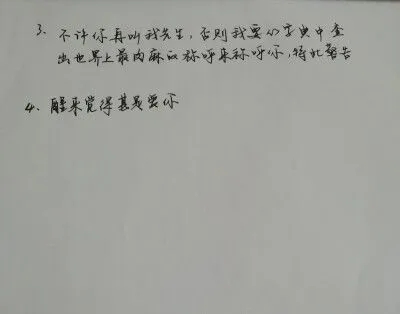 3. 不许你再叫我先生，否则我要从字典中查
出世界上最肉麻的称呼来称呼你，特此警告
4. 醒来觉得甚是爱你